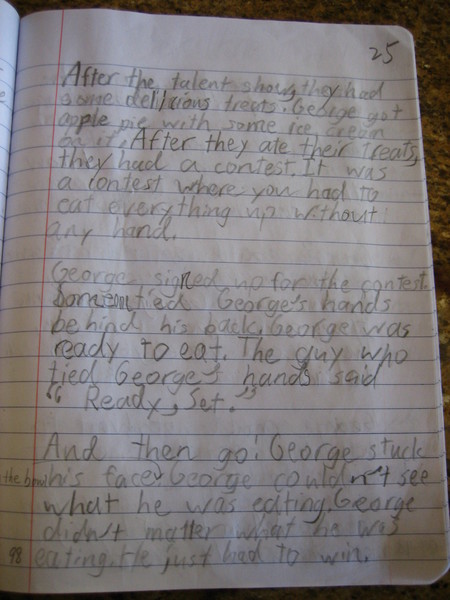 25
After the talent show, they had
some delicious treats. George got
apple pie with some ice cream
on it. After they ate their treats,
they had a contest. It was
a contest where you had to
eat everything up without
any hand.
George signed up for the contest.
Someone tied George's hands
behind his back. George was
ready to eat. The guy who
tied George's hands said
“ Ready, Set. ”
And then go! George stuck
his face George couldn't see
what he was eating. George
didn't matter what he was
98 eating. He just had to win.